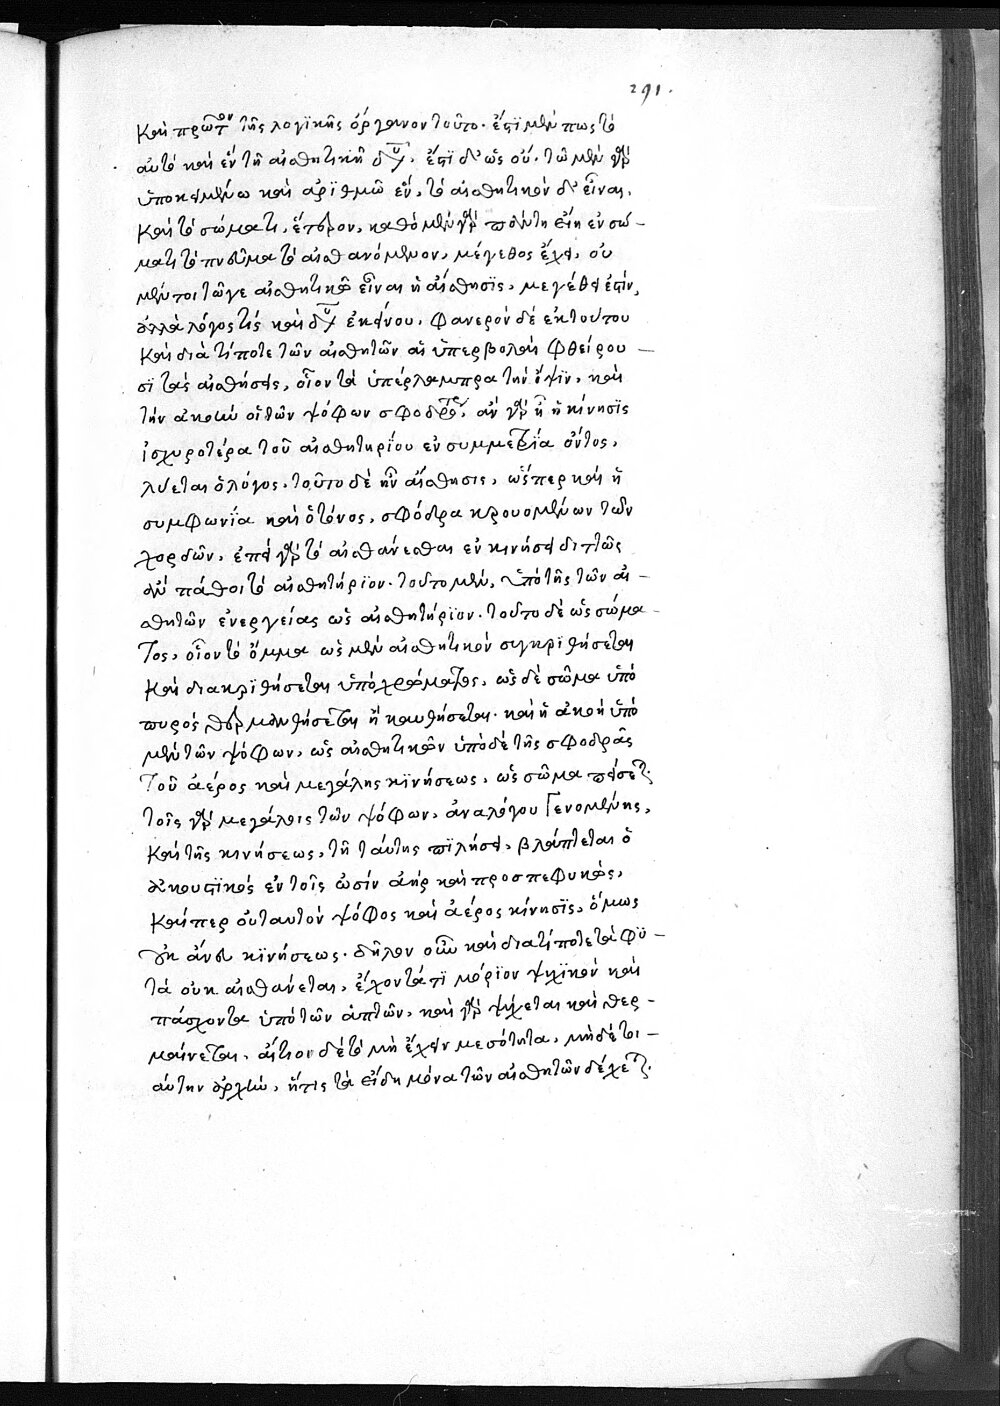 291.
καὶ πρῶτον τῆς λογϊκῆς ὄργανον τοῦτο. ἔστϊ μὲν πως τὸ
αὐτὸ καὶ ἓν τῆ αἰσθητικῆ δυ, ἔστϊ δ' ὡς οὔ. τῶ μὲν γὰρ
ὑποκειμένω καὶ ἀρϊθμῶ ἓν, τὸ αἰσθητικὸν δ' εἶναι,
καὶ τὸ σώματι, ἕτερον, καθὸ μὲν γὰρ πάντη εἴη ἐν σώ-
ματι τὸ πνεῦμα τὸ αἰσθανόμενον, μέγεθος ἔχει, οὐ
μέν τοι τῶγε αἰσθητικῶ εἶναι ἡ αἴσθησϊς, μεγέθει ἐστίν,
ἀλλὰ λόγος τίς καὶ δυ ἐκείνου. φανερὸν δὲ ἐκ τούτου
καὶ διὰ τί ποτε τῶν αἰσθητῶν αἱ ὑπερβολαὶ φθείρου-
σϊ τὰς αἰσθήσεις, οἷον τὰ ὑπέρλαμπρα τὴν ὄψϊν, καὶ
τὴν ἀκοὴν οἱ τῶν ψόφων σφοδροί, ἂν γὰρ ἦ ἡ κίνησϊς
ἰσχυροτέρα τοῦ αἰσθητηρίου ἐν συμμετρΐα ὄντος,
λύεται ὁ λόγος. τοῦτο δὲ ἦν αἴσθησις, ὥσπερ καὶ ἡ
συμφωνΐα καὶ ὁ τόνος, σφόδρα κρουομένων τῶν
χορδῶν, ἐπεὶ γὰρ τὸ αἰσθάνεσθαι ἐν κινήσει διττῶς
ἂν πάθοι τὸ αἰσθητήρϊον. τοῦτο μὲν, ὑπὸ τῆς τῶν αἰ-
σθητῶν ἐνεργείας ὡς αἰσθητήρϊον. τοῦτο δὲ ὡς σώμα-
τος, οἷον τὸ ὄμμα ὡς μὲν αἰσθητικὸν συγκρϊθήσεται
καὶ διακρϊθήσεται ὑπὸ χρώματος, ὡς δὲ σῶμα ὑπὸ
πυρὸς θερμανθήσεται ἢ καυθήσεται. καὶ ἡ ἀκοὴ ὑπὸ
μὲν τῶν ψόφων, ὡς αἰσθητικὸν ὑπὸ δὲ τῆς σφοδρᾶς
τοῦ ἀέρος καὶ μεγάλης κϊνήσεως, ὡς σῶμα πείσεται.
τοῖς γὰρ μεγάλοις τῶν ψόφων, ἀναλόγου γενομένης,
καὶ τῆς κινήσεως, τῆ ταύτης πϊλήσει, βλάπτεται ὁ
ἀκουστϊκὸς ἐν τοῖς ὠσίν ἀὴρ καὶ προσπεφυκὼς,
καίπερ οὐ ταυτὸν ψόφος καὶ ἀέρος κίνησϊς, ὅμως
οὐκ ἄνευ κϊνήσεως. δῆλον οὖν καὶ διατί ποτε τὰ φϋ-
τὰ οὐκ αἰσθάνεται, ἔχοντά τϊ μόρϊον ψυχϊκὸν καὶ
πάσχοντα ὑπὸ τῶν ἁπτῶν, καὶ γὰρ ψύχεται καὶ θερ-
μαίνεται, αἴτιον δὲ τὸ μὴ ἔχειν μεσότητα, μηδὲ τοι-
αύτην ἀρχὴν, ἥτις τὰ εἴδη μόνα τῶν αἰσθητῶν δέχεται.